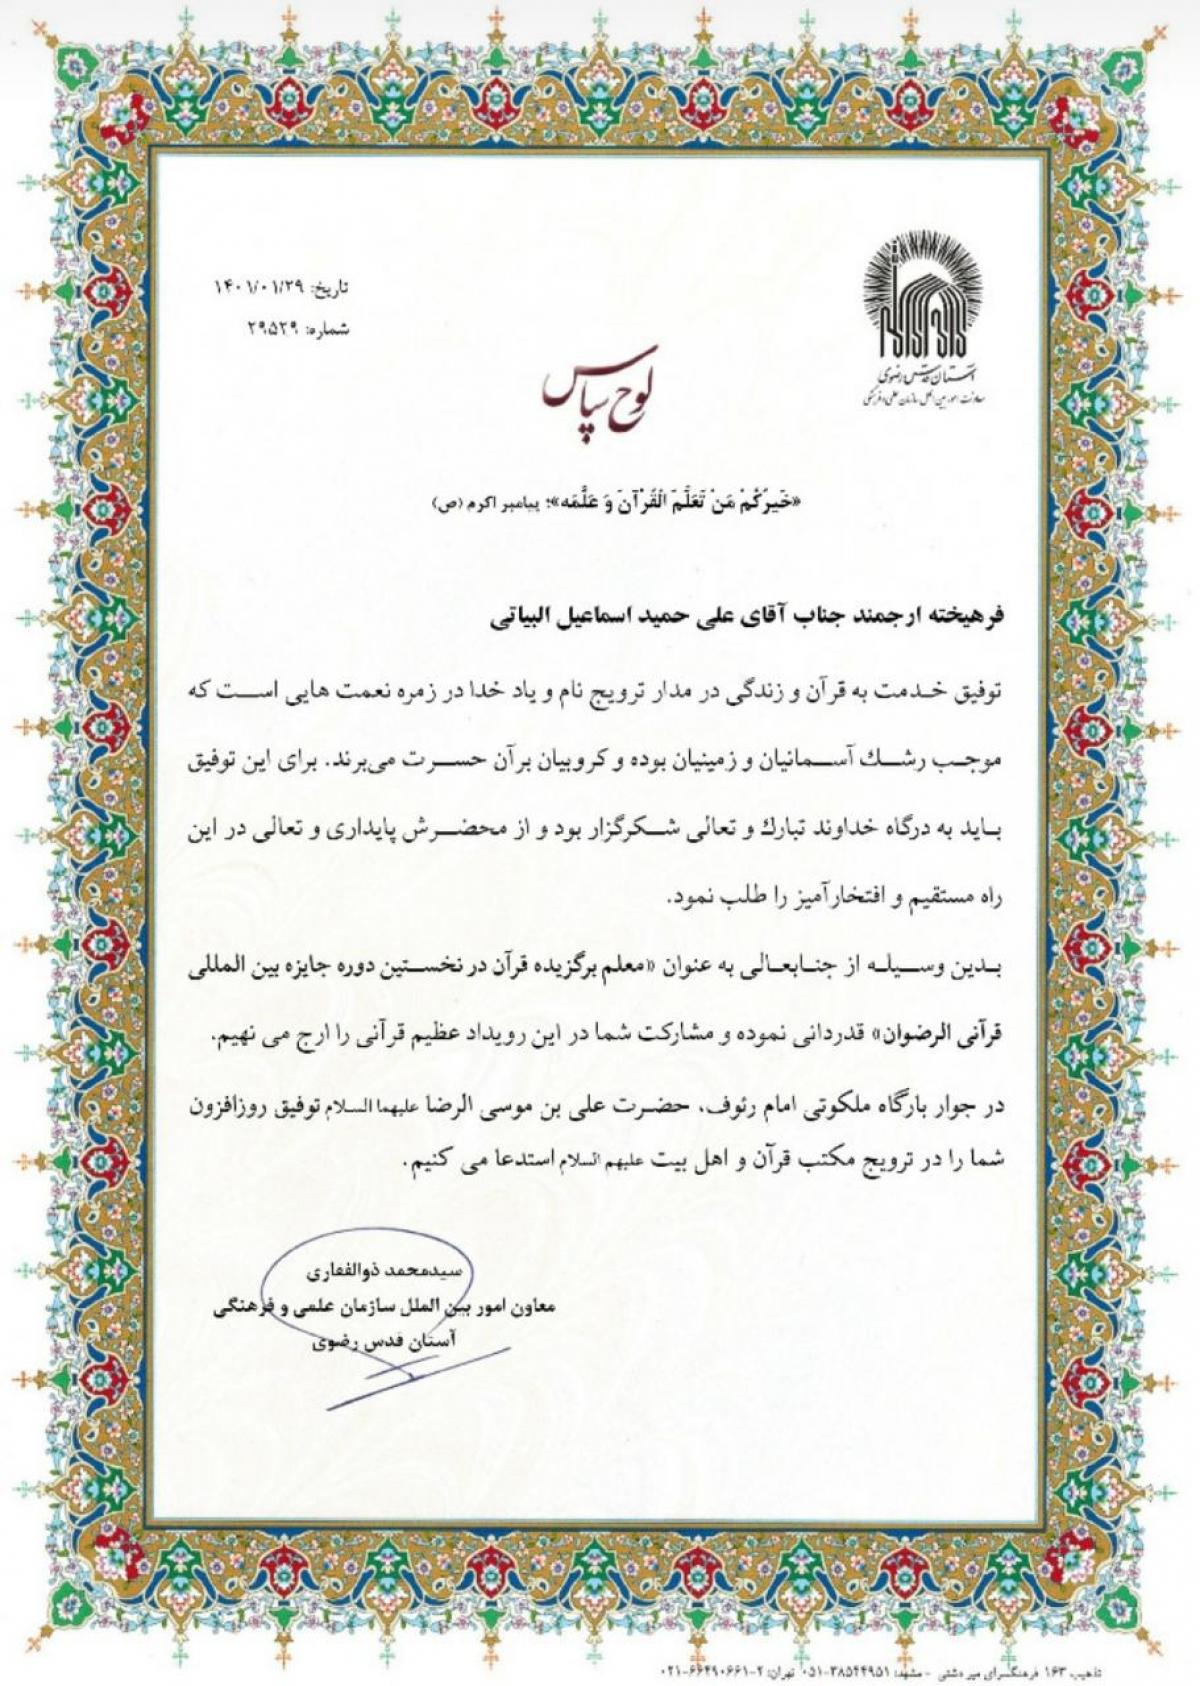 تاریخ: ۱۴۰۱/۰۱/۲۹
شماره: ۲۹۵۲۹
آستان قدس رضوی
معاونت امور بین الملل سازمان علمی و فرهنگی
لوح سپاس
«خَیرُکُمْ مَنْ تَعَلَّمَ الْقُرْآنَ وَ عَلَّمَه»؛ پیامبر اکرم (ص)
فرهیخته ارجمند جناب آقای علی حمید اسماعیل البیاتی
توفیق خدمت به قرآن و زندگی در مدار ترویج نام و یاد خدا در زمره نعمت هایی است که
موجب رشک آسمانیان و زمینیان بوده و کروبیان برآن حسرت می‌برند. برای این توفیق
باید به درگاه خداوند تبارک و تعالی شکرگزار بود و از محضرش پایداری و تعالی در این
راه مستقیم و افتخارآمیز را طلب نمود.
بدین وسیله از جنابعالی به عنوان «معلم برگزیده قرآن در نخستین دوره جایزه بین المللی
قرآنی الرضوان» قدردانی نموده و مشارکت شما در این رویداد عظیم قرآنی را ارج می نهیم.
در جوار بارگاه ملکوتی امام رئوف، حضرت علی بن موسی الرضا علیهما السلام توفیق روزافزون
شما را در ترویج مکتب قرآن و اهل بیت علیهم السلام استدعا می کنیم.
سیدمحمد ذوالفقاری
معاون امور بین الملل سازمان علمی و فرهنگی
آستان قدس رضوی
تذهیب ۱۶۳ فرهنگسرای میردشتی - مشهد: ۳۸۵۴۴۹۵۱-۰۵۱ تهران: ۲-۶۶۴۹۰۶۶۱-۰۲۱